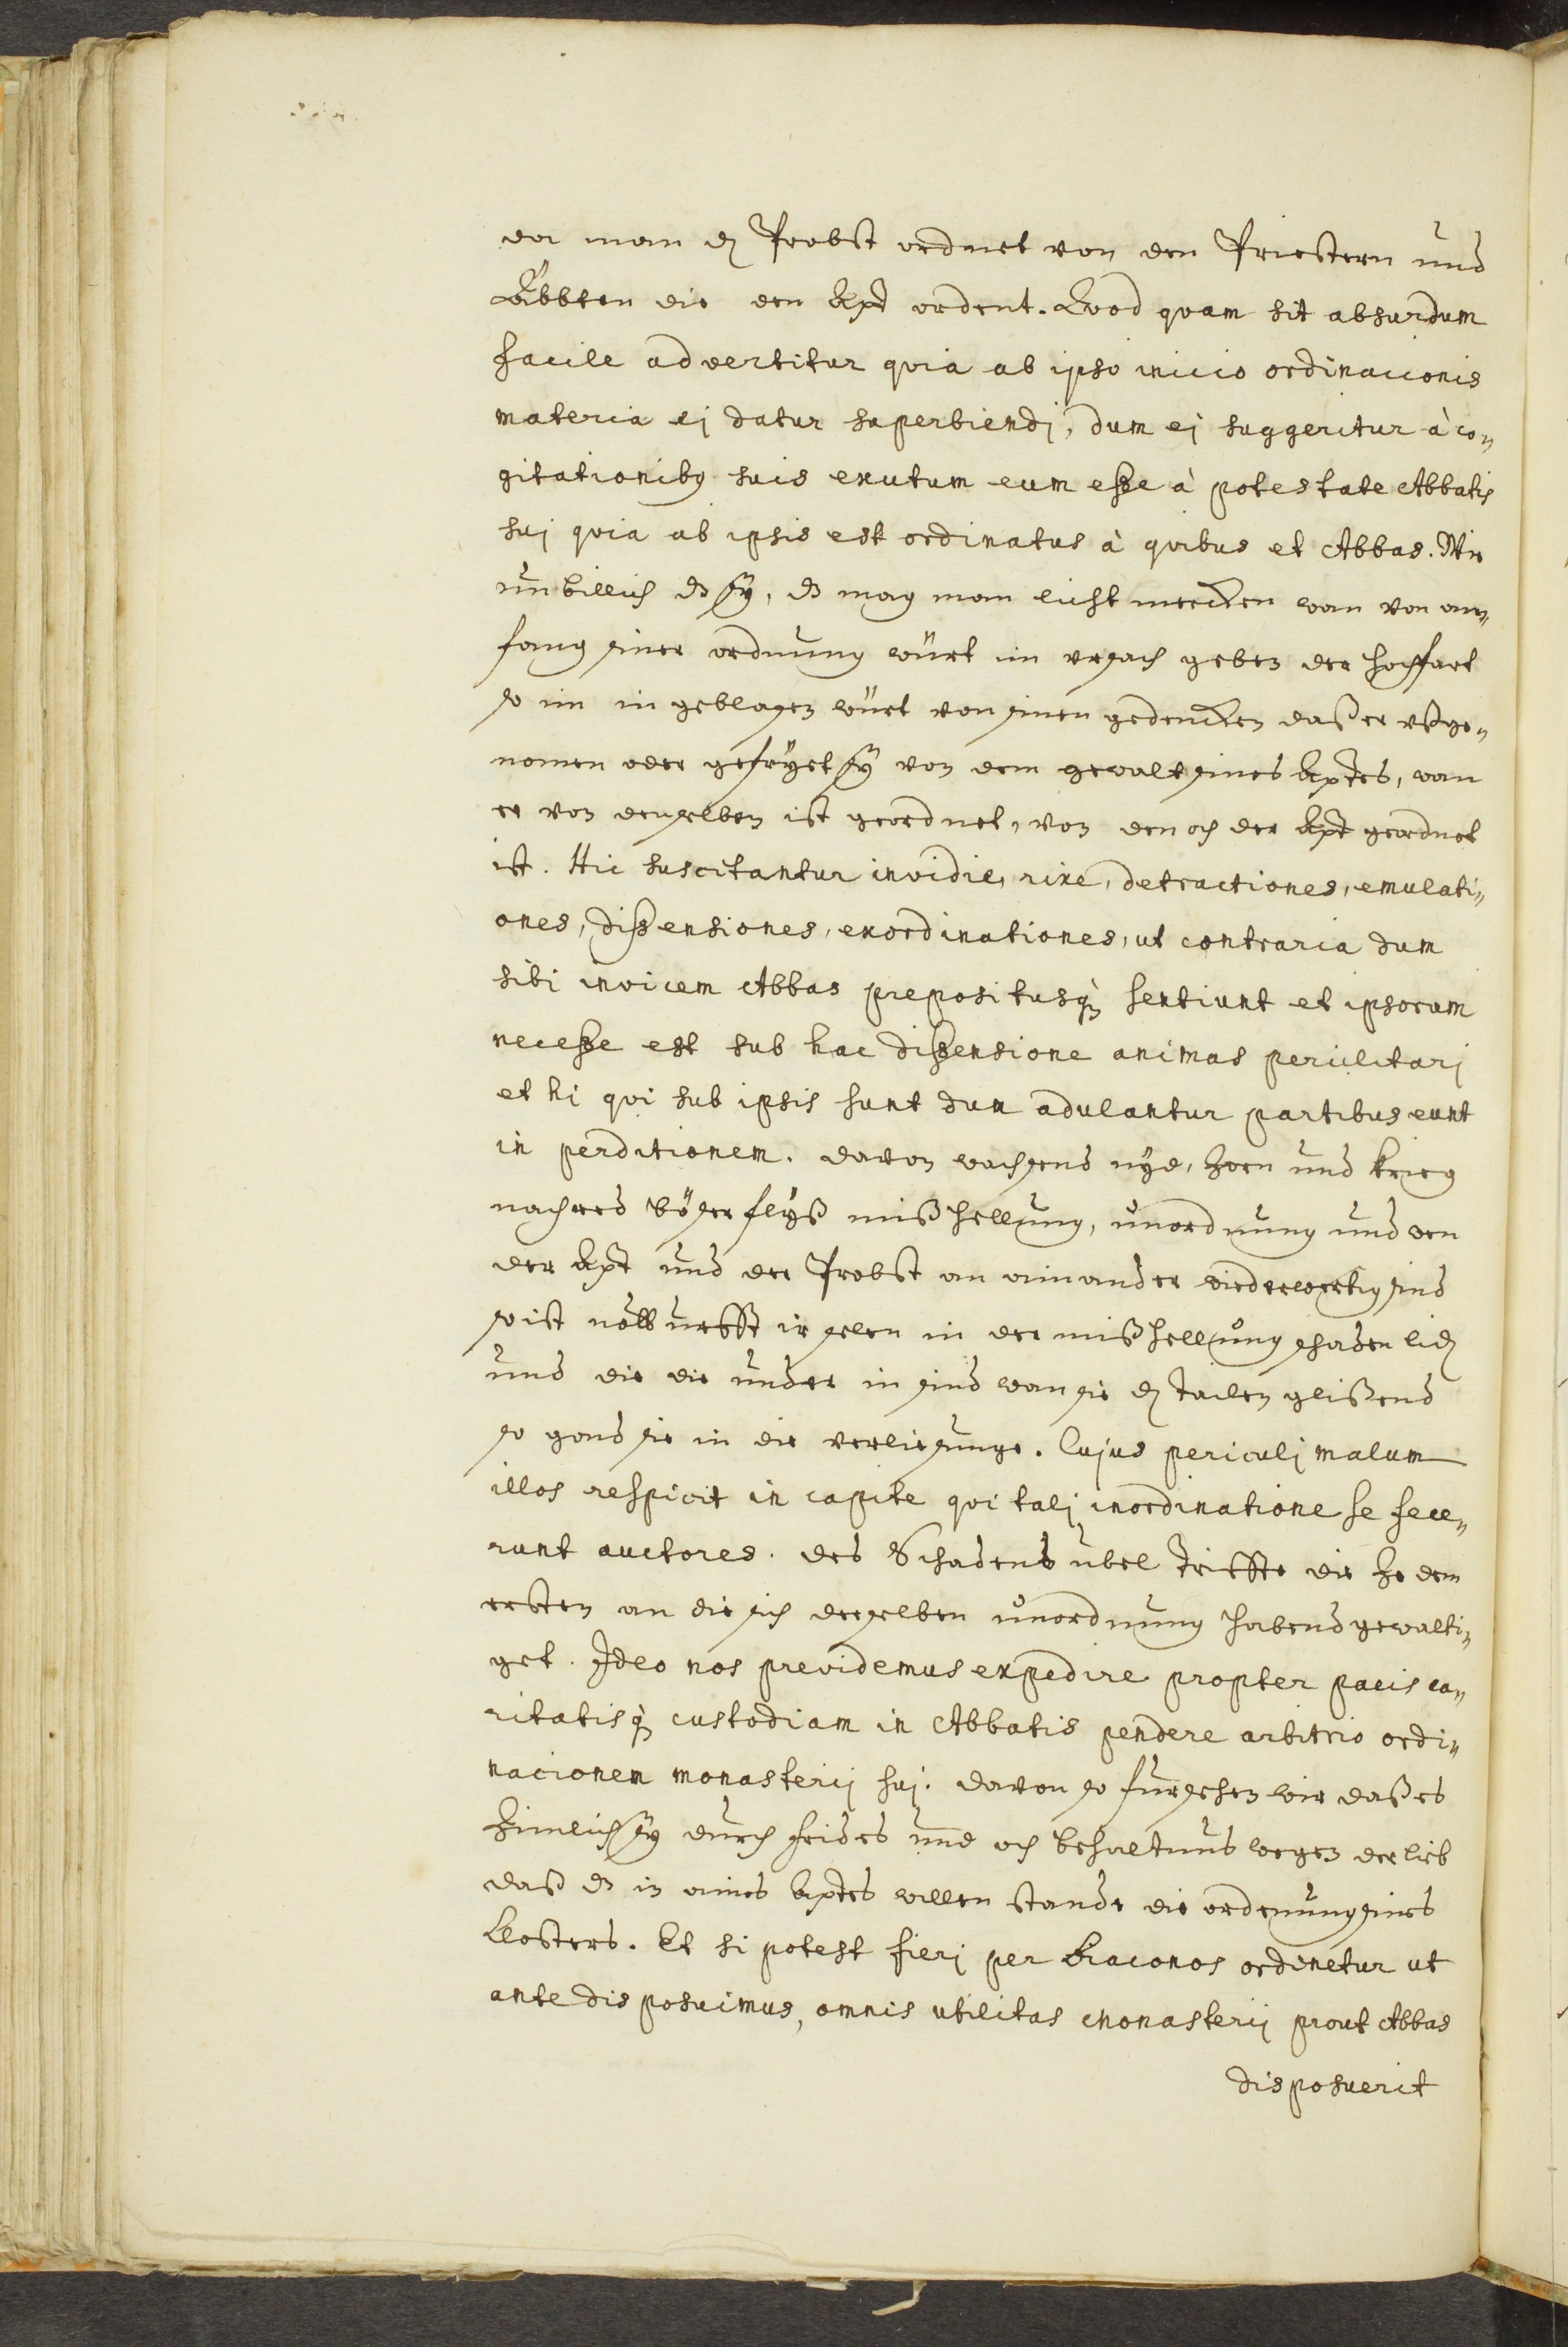 da man dz Probst ordnet von den Priestern und
Äbbten die den Apt ordent. Quod quam sit absurdum
facile advertitur quia ab ipso inicio ordinacionis
materia ej datur superbiendj, dum ej suggeritur à co„
gitationibꝰ suis exutum eum eße à potestate Abbatis
suj quia ab ipsis est ordinatus à quibus et Abbas. Wie
unbillich dz sÿ, dz mag man licht mercken wan von an„
fang siner ordnung würt im ursach geben der hochfart
so im in geblasen würt von sinen gedencken daß er ußge„
nomen oder gefryet sÿ von dem gewalt sines Aptes, wan
er von denselben ist geordnet, von den och der Apt geordnet
ist. Hic suscitantur invidie, rixe, detractiones, emulati„
ones, dißensiones, exordinationes, ut contraria dum
sibi invicem Abbas prepositusq̀ꝫ sentiunt et ipsorum
neceße est sub hac dißensione animas periclitarj
et hi qui sub ipsis sunt dum adulantur partibus eunt
in perditionem. davon wachsend nyd, Zorn und krieg
nachred böser flyß mißhellung, unordnung und wen
der Apt und der Probst an ainander widerwertig sind
so ist nottürfft ir selen in der mißhellung schaden lidẽ
und die die under in sind wan sie dẽ tailen glißend
so gond sie in die verliesunge. Cujus periculj malum
illos respicit in capite qui talj inordinatione se fece„
runt auctores. des Schadens übel trifft die ze dem
ersten an die sich derselben unordnung habend gewalti„
get. Ideo nos previdemus expedire propter pacis ca„
ritatisq̀ꝫ custodiam in Abbatis pendere arbitrio ordi„
nacionem monasterij suj. davon so fürsehen wir daß es
Zimlich sÿ durch frides und och behaltnus wegen der lieb
daß dz in aines Aptes willen stande die ordenung sines
Closters. Et si potest fierj per Diaconos ordinetur ut
ante disposuimus, omnis utilitas monasterij prout Abbas
disposuerit